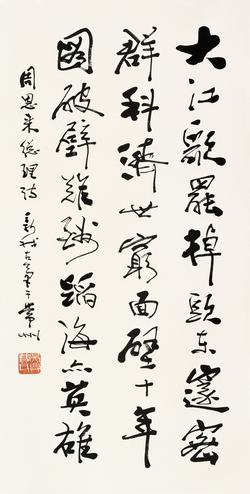 大江歌罢掉头东邃密
群科济世穷面壁十年
图破壁难酬蹈海亦英雄
周恩来总理诗